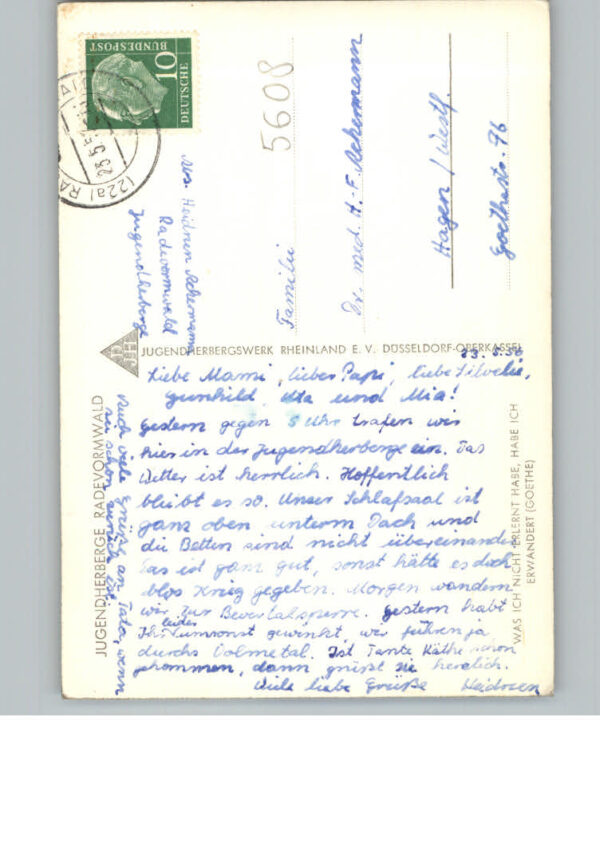 DEUTSCHE
BUNDESPOST
10
(22a) RA
23.5.5
5608
Abs. Heidrun Ackermann
Radevormwald
Jugendherberge
Familie
Dr. med. H.-F. Ackermann
Hagen / Westf.
Goethestr. 76
JUGENDHERBERGSWERK RHEINLAND E. V. DÜSSELDORF-OBERKASSEL
JUGENDHERBERGE RADEVORMWALD
WAS ICH NICHT ERLERNT HABE, HABE ICH
ERWANDERT (GOETHE)
23.5.56
Liebe Mami, lieber Papi, liebe
Gunhild, Uta und Mia!
Gestern gegen 5 Uhr trafen wir
hier in der Jugendherberge ein. Das
Wetter ist herrlich. Hoffentlich
bleibt es so. Unser Schlafsaal ist
ganz oben unterm Dach und
die Betten sind nicht übereinander
Das ist ganz gut, sonst hätte es doch
blos Krieg gegeben. Morgen wandern
wir zur Bevertalsperre. Gestern habt
Ihr leider umsonst gewinkt, wir führen ja
durchs Volmetal. Ist Tante Käthe schon
gekommen, dann grüßt sie herzlich.
Viele liebe Grüße Heidrun
Auch viele Grüße an Tata, wenn
sie schon zurück ist.